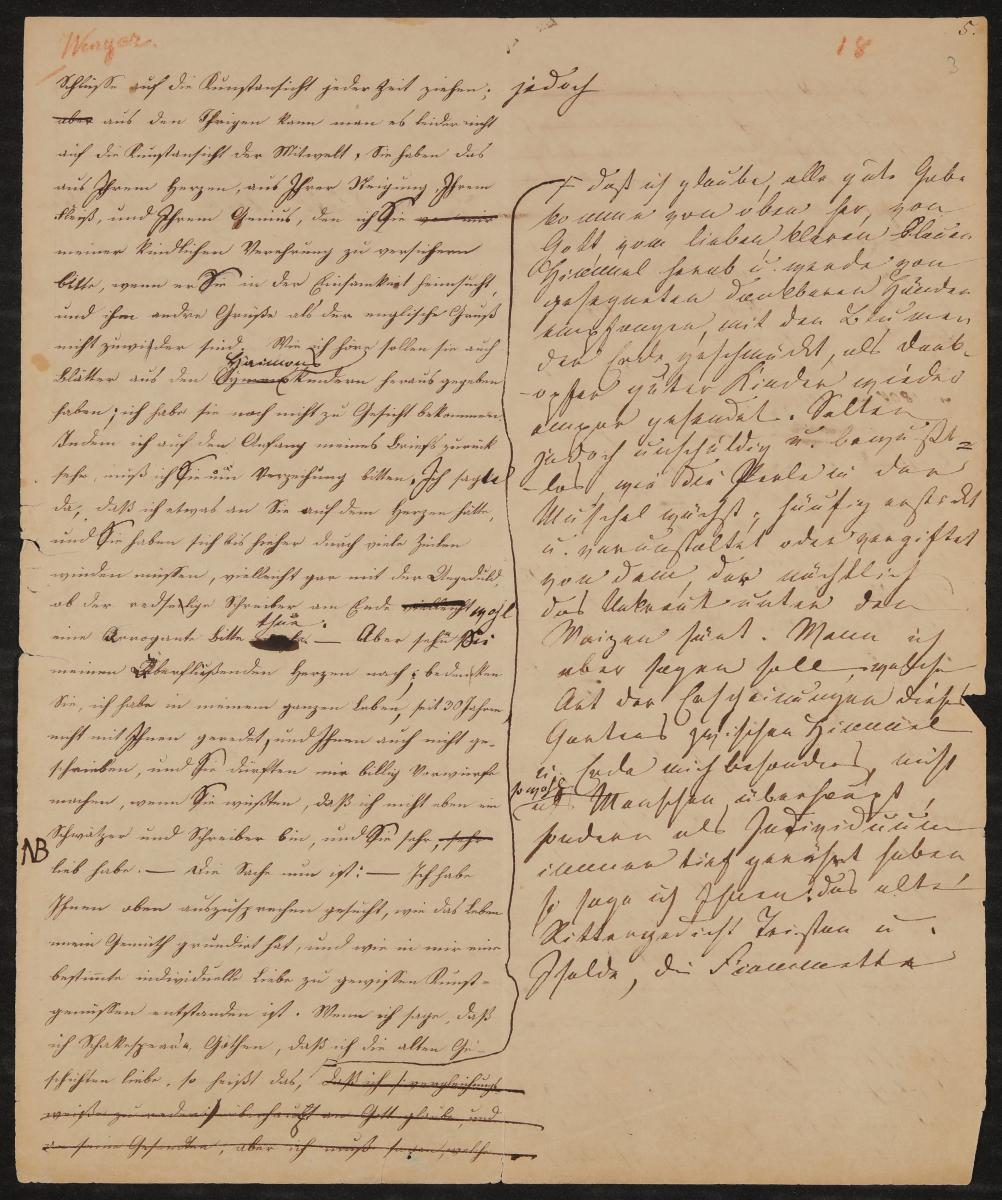 5.
18
3
Schlüsse auf die Kunstansicht jeder Zeit ziehen; jedoch
aber aus den Ihrigen kann man es leider nicht
auf die Kunstansicht der Mitwelt. Sie haben das
aus Ihrem Herzen, aus Ihrer Neigung, Ihrem
Fleiß, und Ihrem Genius, den ich Sie von mir
meiner kindlichen Verehrung zu versichern
bitte, wenn er Sie in der Einsamkeit heimsucht,
und ihm andre Grüße als der englische Gruß
nicht zuwider sind. Wie ich höre sollen sie auch
Haimons
Blätter aus den kindern heraus gegeben
haben; ich habe sie noch nicht zu Gesicht bekommen.
Indem ich auf den Anfang meines Briefs zurück
sehe, muß ich Sie um Verzeihung bitten. Ich sagte
da, daß ich etwas an Sie auf dem Herzen hätte,
und Sie haben sich bis hieher durch viele Zeilen
winden müssen, vielleicht gar mit der Ungeduld,
ob der redselige Schreiber am Ende vielleicht wohl
thue.
eine Arrogante bitte — Aber sehn Sie
meinen Überfließenden Herzen nach; bedenken
Sie, ich habe in meinem ganzen Leben, seit 30 Jahren
nicht mit Ihnen geredet, und Ihnen auch nicht ge-
schrieben, und Sie dürften mir billig Vorwürfe
machen, wenn Sie wüßten, daß ich nicht eben ein
NB
Schwätzer und Schreiber bin, und Sie sehr, sehr
lieb habe. — Die Sache nun ist: — Ich habe
Ihnen oben auszusprechen gesucht, wie das Leben
mein Gemüth grundirt hat, und wie in mir eine
bestimmte individuelle Liebe zu gewissen Kunst-
genüssen entstanden ist. Wenn ich sage, daß
ich Schakespearn, Göthen, daß ich die alten Ge-
schichten liebe, so heißt das, daß ich vergleichungs
weiße zu reden überhaupt an Gott glaube, und
an seine Gesandten, aber ich muß sagen, welche
daß ich glaube, alle gute Gabe
komme von oben her, von
Gott vom lieben klaren blauen
Himmel herab u. werde von
gesegneten dankbaren Händen
empfangen, mit den Blumen
der Erde geschmückt, als Dank-
-opfer guter Kinder wieder
empor gesendet. Selten
jedoch unschuldig u. bewußt=
-los, wie die Perle in der
Muschel wächst; häufig erstickt
u. verunstaltet oder vergiftet
von dem, der nächtlich
das Unkraut unter den
Waizen säet. Wenn ich
aber sagen soll, welche
Art der Erscheinungen dieses
Gartens zwischen Himmel
u. Erde mich besonders, nicht
sowohl
als Menschen überhaupt,
sondern als Individuum
immer tief gerührt haben
so sage ich Ihnen: das alte
Rittergedicht Tristan u.
Isolde, die Fiammetta